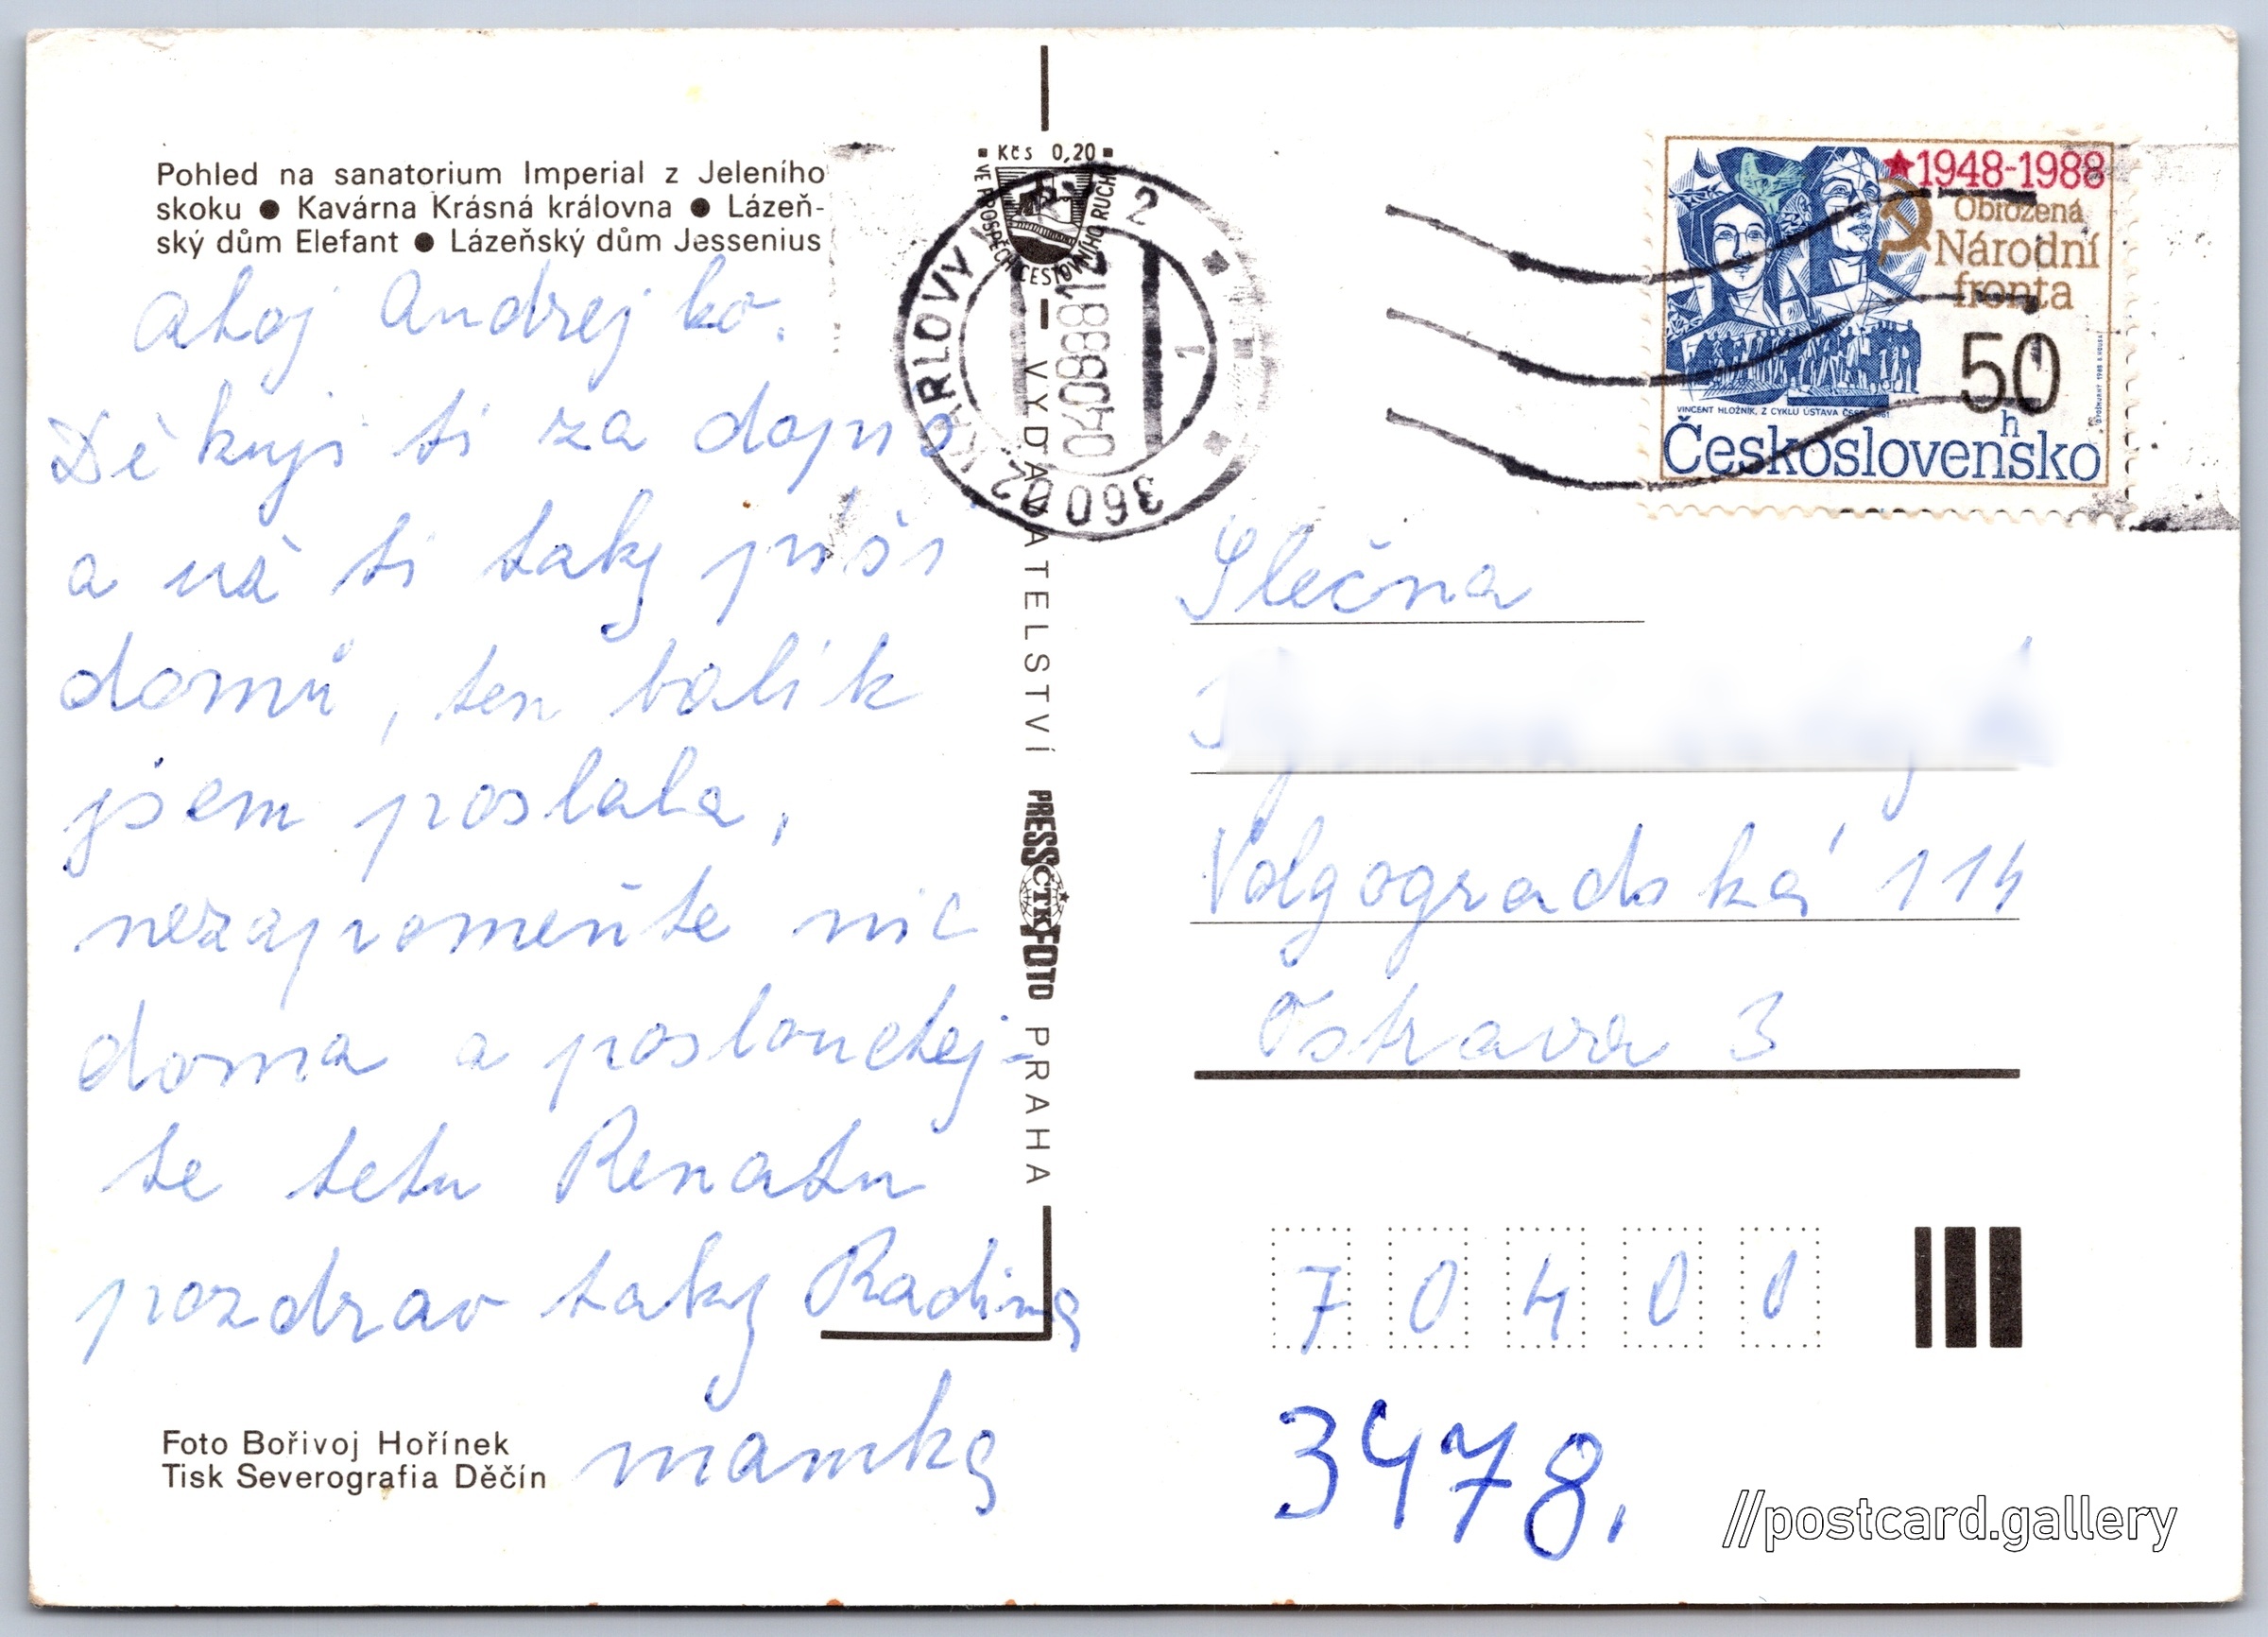 Pohled na sanatorium Imperial z Jeleního
skoku ● Kavárna Krásná královna ● Lázeň-
ský dům Elefant ● Lázeňský dům Jessenius
Ahoj Andrejko.
Děkuji ti za dopis
a už ti taky píši
domů, ten balík
jsem poslala,
nezapomeňte nic
doma a poslouchej-
te tetu Renatu
pozdrav taky Radima
mamka
Foto Bořivoj Hořínek
Tisk Severografia Děčín
Kčs 0,20
VE PROSPĚCH CESTOVNÍHO RUCHU
KARLOVY 2
04088812
1
360 02
VYDAVATELSTVÍ PRESSČTKFOTO PRAHA
1948-1988
Obrozená
Národní
fronta
50
h
VINCENT HLOŽNÍK, Z CYKLU ÚSTAVA
Československo
Slečna
Volgogradská 114
Ostrava 3
70400
3478.
//postcard.gallery